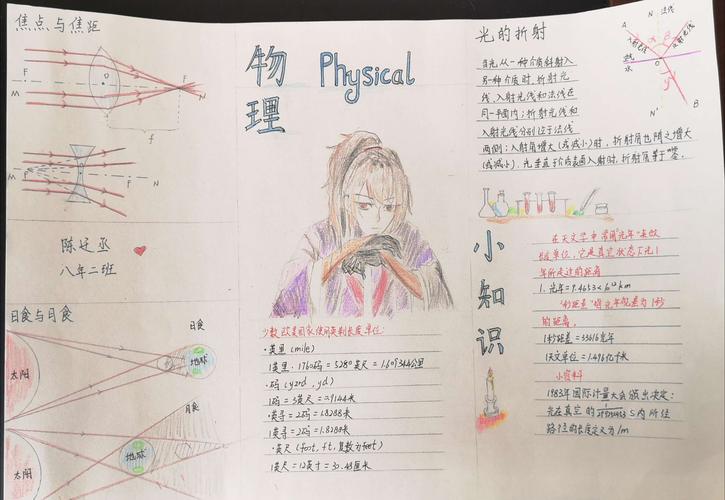 焦点与焦距
M
F
O
F
N
f
M
F
O
F
N
陈廷丞
八年二班
日食与月食
太阳
日食
地球
月食
太阳
地球
物理
Physical
少数欧美国家使用英制长度单位:
·英里(mile)
1英里=1760码=5280英尺=1.609344公里
·码(yard, yd)
1码=3英尺=0.9144米
·英寻=2码=1.8288米
1英寻=2码=1.8288米
·英尺(foot, ft, 复数为feet)
1英尺=12英寸=30.48厘米
光的折射
当光从一种介质斜射入
另一种介质时,折射光
线、入射光线和法线在
同一平面内;折射光线和
入射光线分别位于法线
两侧;入射角增大(或减小)时,折射角也随之增大
(或减小).光垂直于介质表面入射时,折射角等于
N
法线
A
入射光线
α
β
反射光线
空气
水
O
γ
N'
B
小知识
在天文学中常用"光年"来做
长度单位,它是真空状态下光1
年所走过的距离
1光年=9.4653×10¹²km
"秒差距"
的距离。
1秒差距=3.3616光年
1天文单位=1.496亿千米
小资料
1983年国际计量大会颁出决定:
光在真空的 S内所经
路径的长度定义为1m